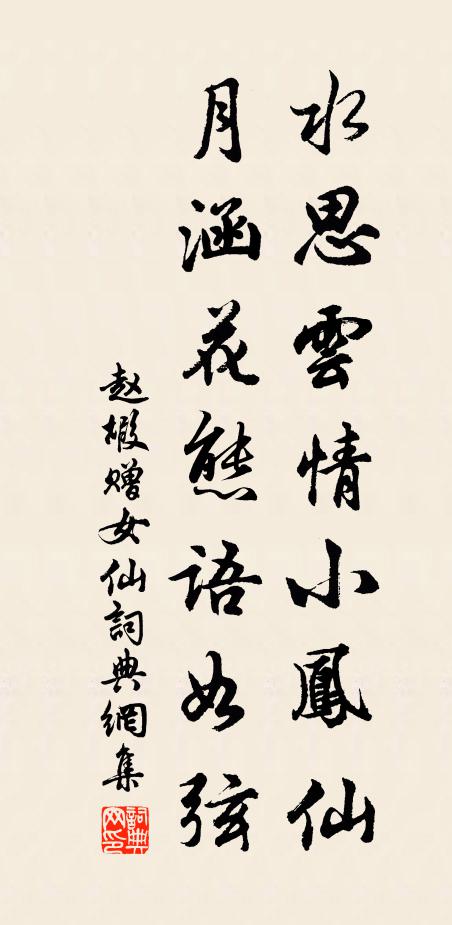 水思雲情小鳳仙
月涵花態語如弦
赵嘏赠女仙詞典網集
詞典
网印